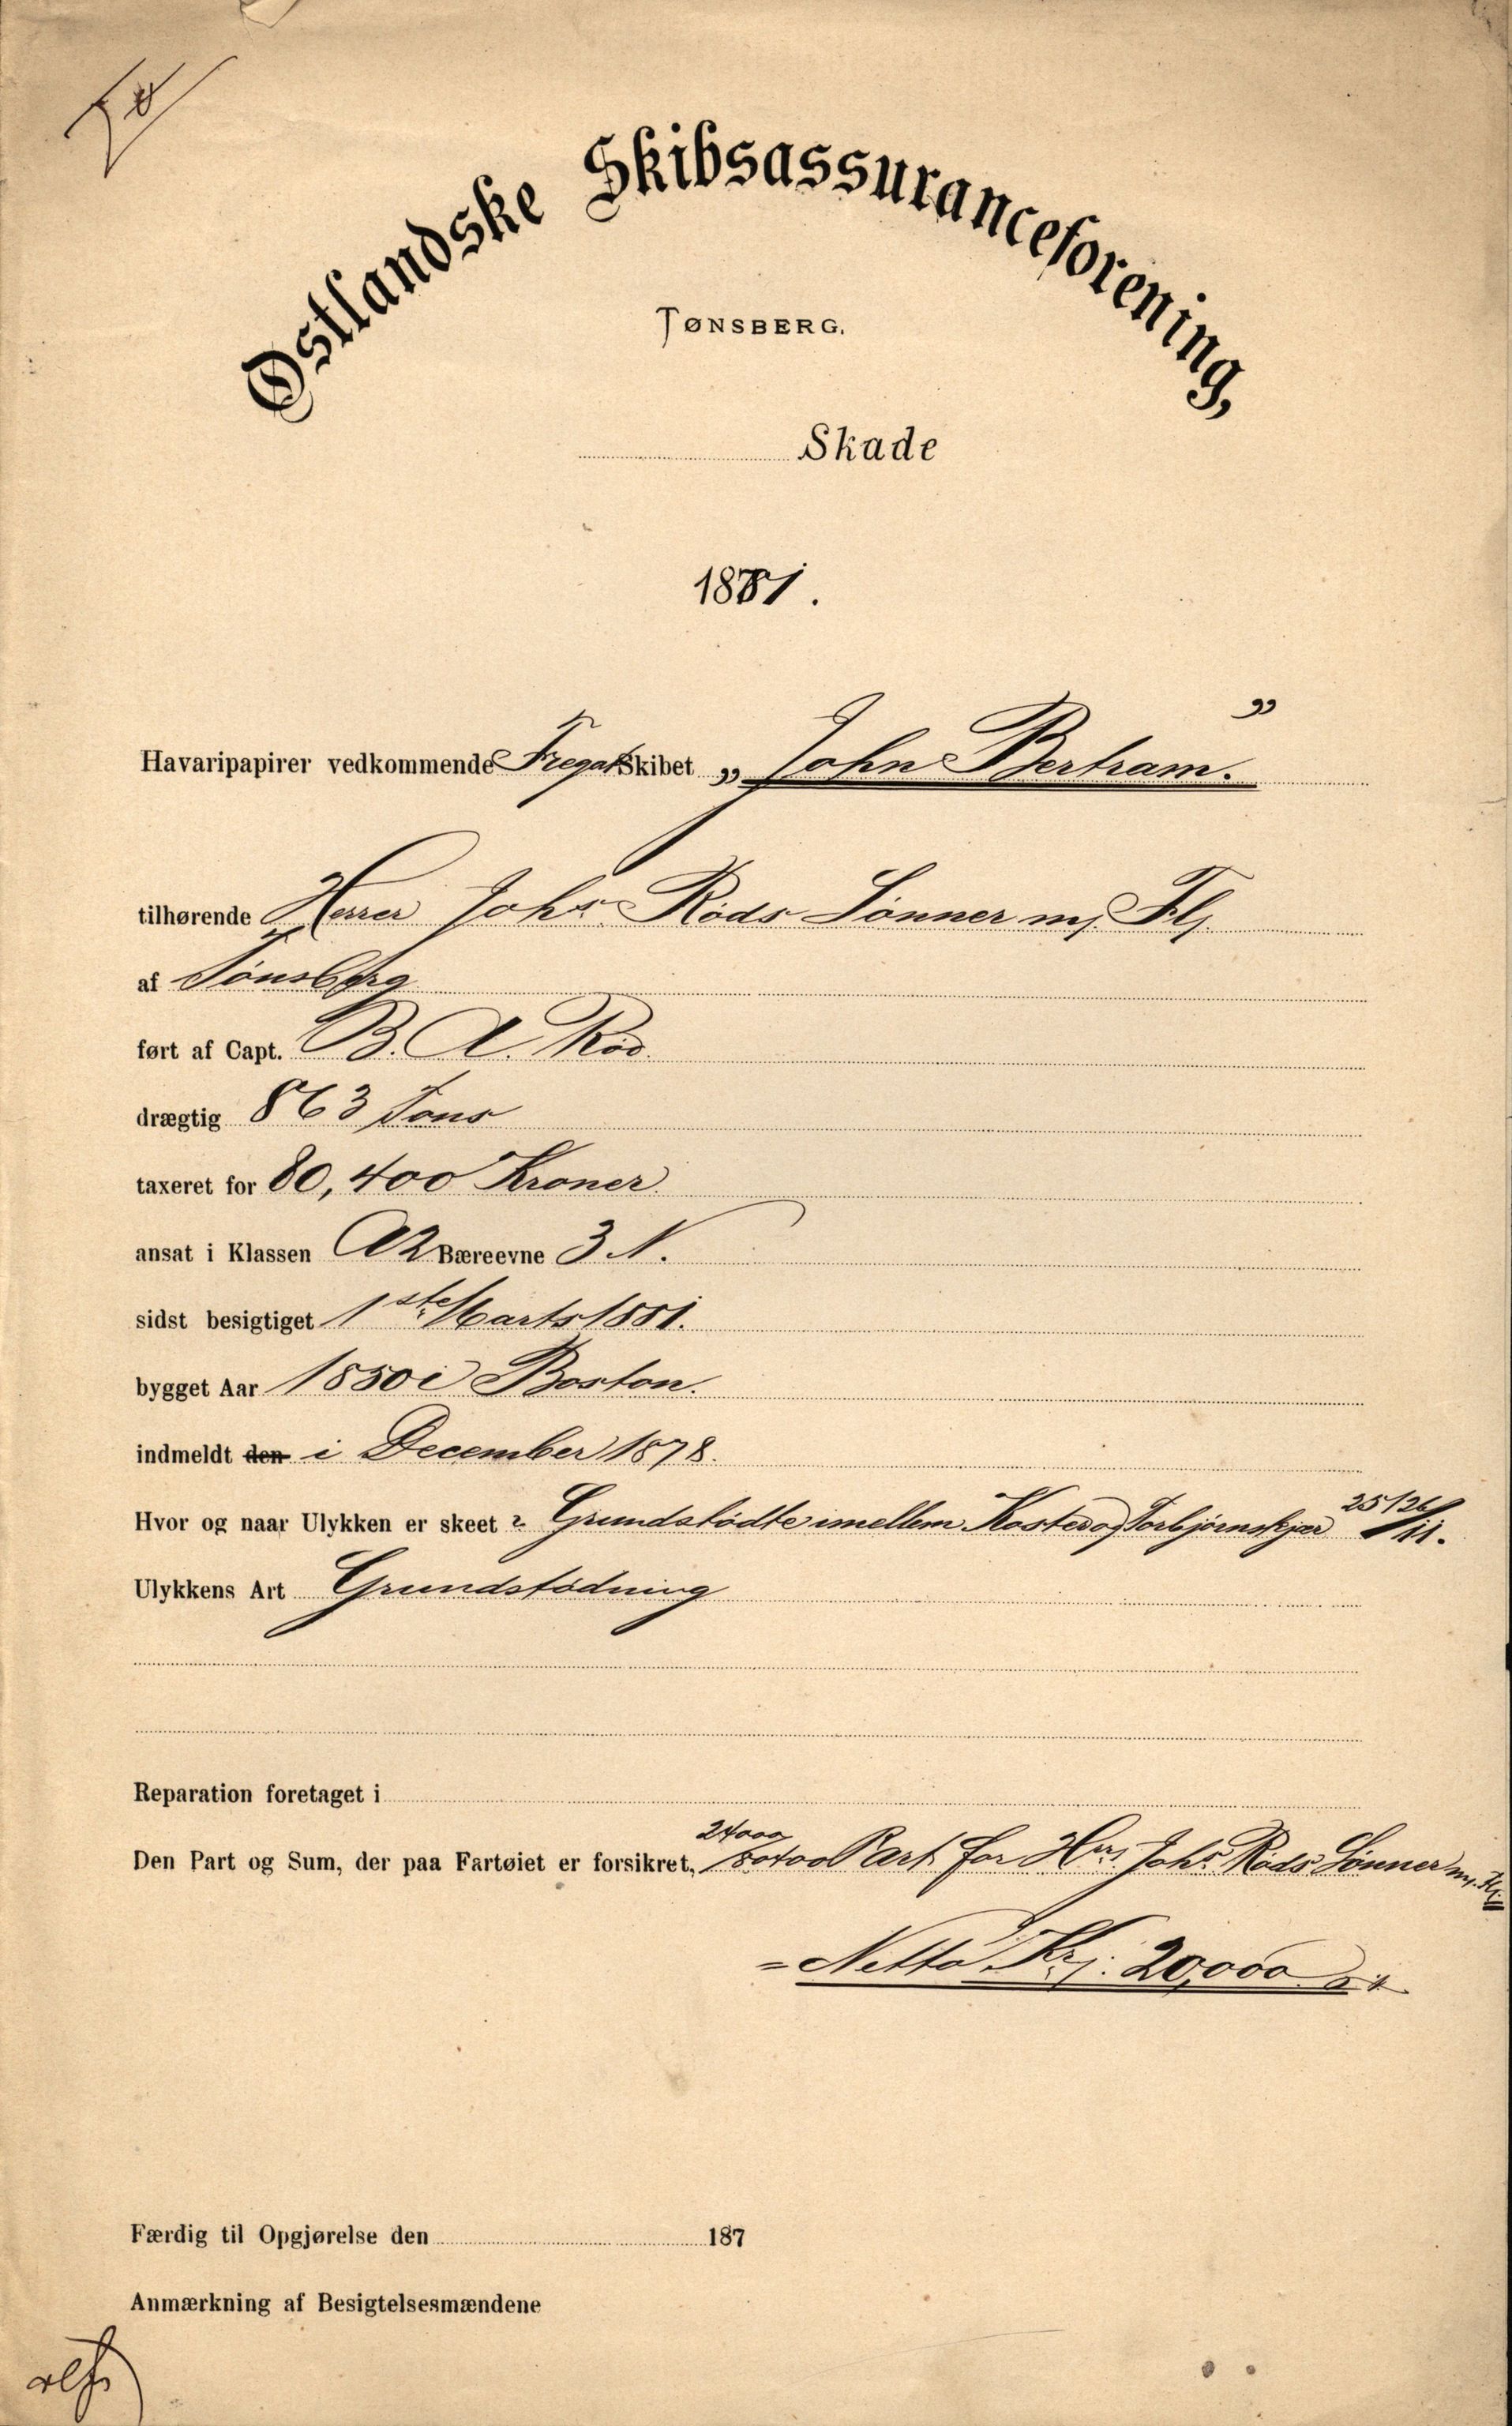 Østlandske Skibsassuranceforening,
TØNSBERG.
Skade
1881.
Havaripapirer vedkommende Fregat Skibet „John Bertram."
tilhørende Herrer Johs Røds Sønner m/ Fl/
af Tønsberg
ført af Capt. B. A. Rød
drægtig 863 Tons
taxeret for 80,400 Kroner
ansat i Klassen A2 Bæreevne 3 N.
sidst besigtiget 1ste Marts 1881.
bygget Aar 1850 i Boston.
indmeldt den i December 1878.
Hvor og naar Ulykken er skeet? Grundstødte imellem Koster og Torbjørnskjær 25/26/11.
Ulykkens Art Grundstødning
Reparation foretaget i
Den Part og Sum, der paa Fartøiet er forsikret, 24000/80400 Part for Hrr Johs Røds Sønner m/. Fl/.
= Netto Kr/: 20,000
Færdig til Opgjørelse den 187
Anmærkning af Besigtelsesmændene